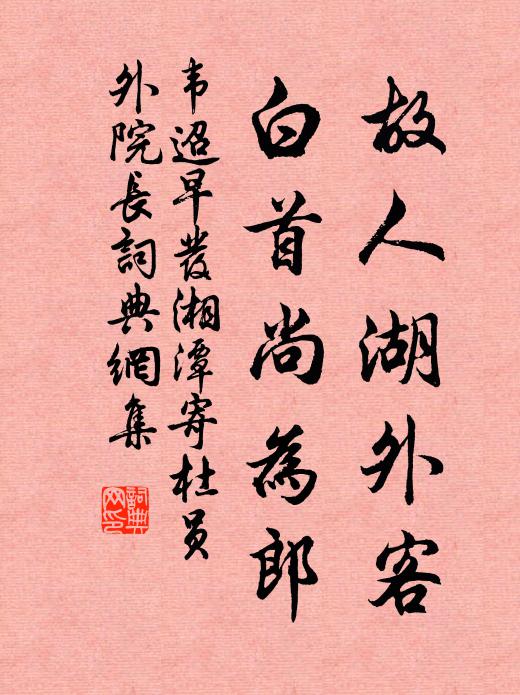 故人湖外客
白首尚為郎
韦迢早發湘潭寄杜员
外院長詞典網集
詞典网印